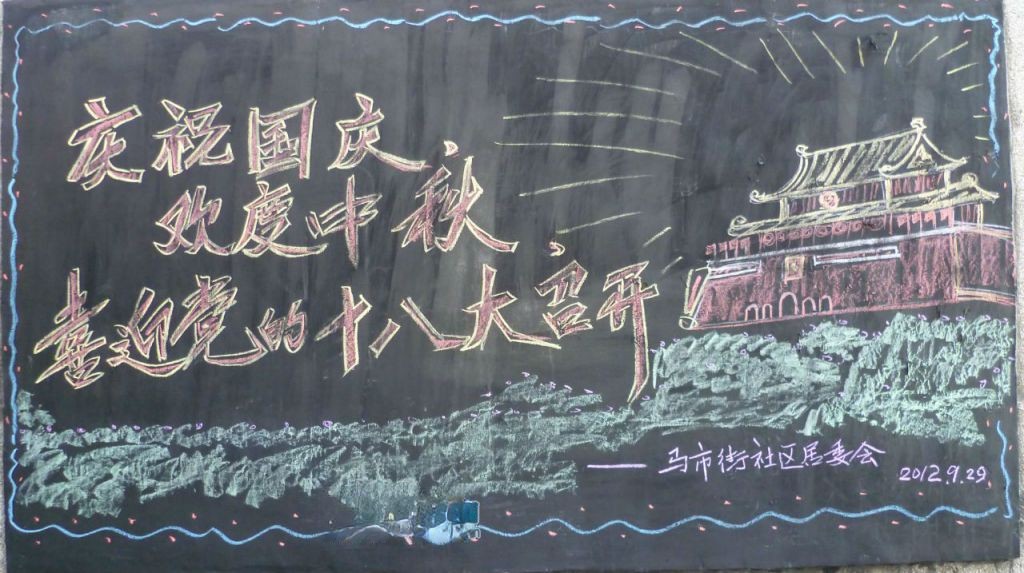 庆祝国庆、
欢度中秋、
喜迎党的十八大召开
——马市街社区居委会
2012.9.29.